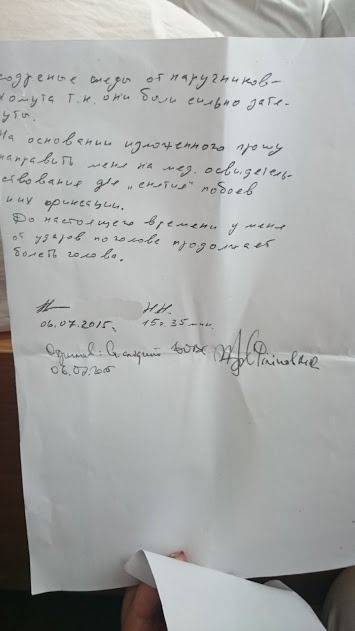 содреные следы от наручников-
хомута т.к. они были сильно затя-
нуты.
На основании изложенного прошу
направить меня на мед. освидетель-
ствование для „снятия" побоев
и их фиксации.
До настоящего времени у меня
от ударов по голове продолжает
болеть голова.
Н.Н.
06.07.2015г. 15ч. 35мин.
06.07.2015